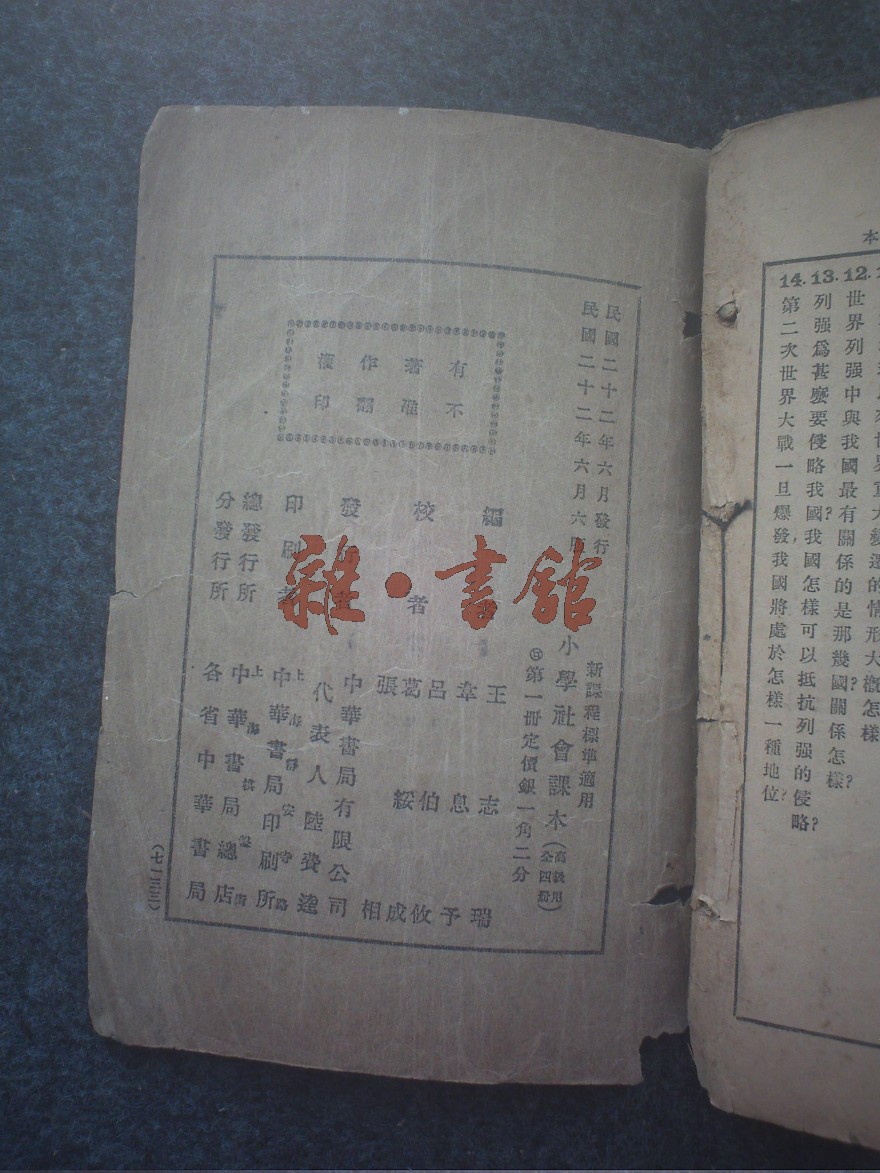 本
12.世界列强中與我國最有關係的是那幾國?關係怎樣?
13.列强爲甚麽要侵略我國?我國怎樣可以抵抗列强的侵略?
14.第二次世界大戰一旦爆發,我國將處於怎樣一種地位?
民國二十二年六月發行
民國二十二年六月六
新課程標準適用
小學社會課本(高級用 全四册)
第一册定價銀一角二分
有著作權
不准翻印
編
王志瑞
韋息予
校者
呂伯攸
葛成
張相
發
中華書局有限公司
代表人 陸費逵
印刷者
上海靜安寺路
中華書局印刷所
總發行所
上海棋盤街
中華書局總店
分發行所
各省中華書局
(七一三三)
雜·書館